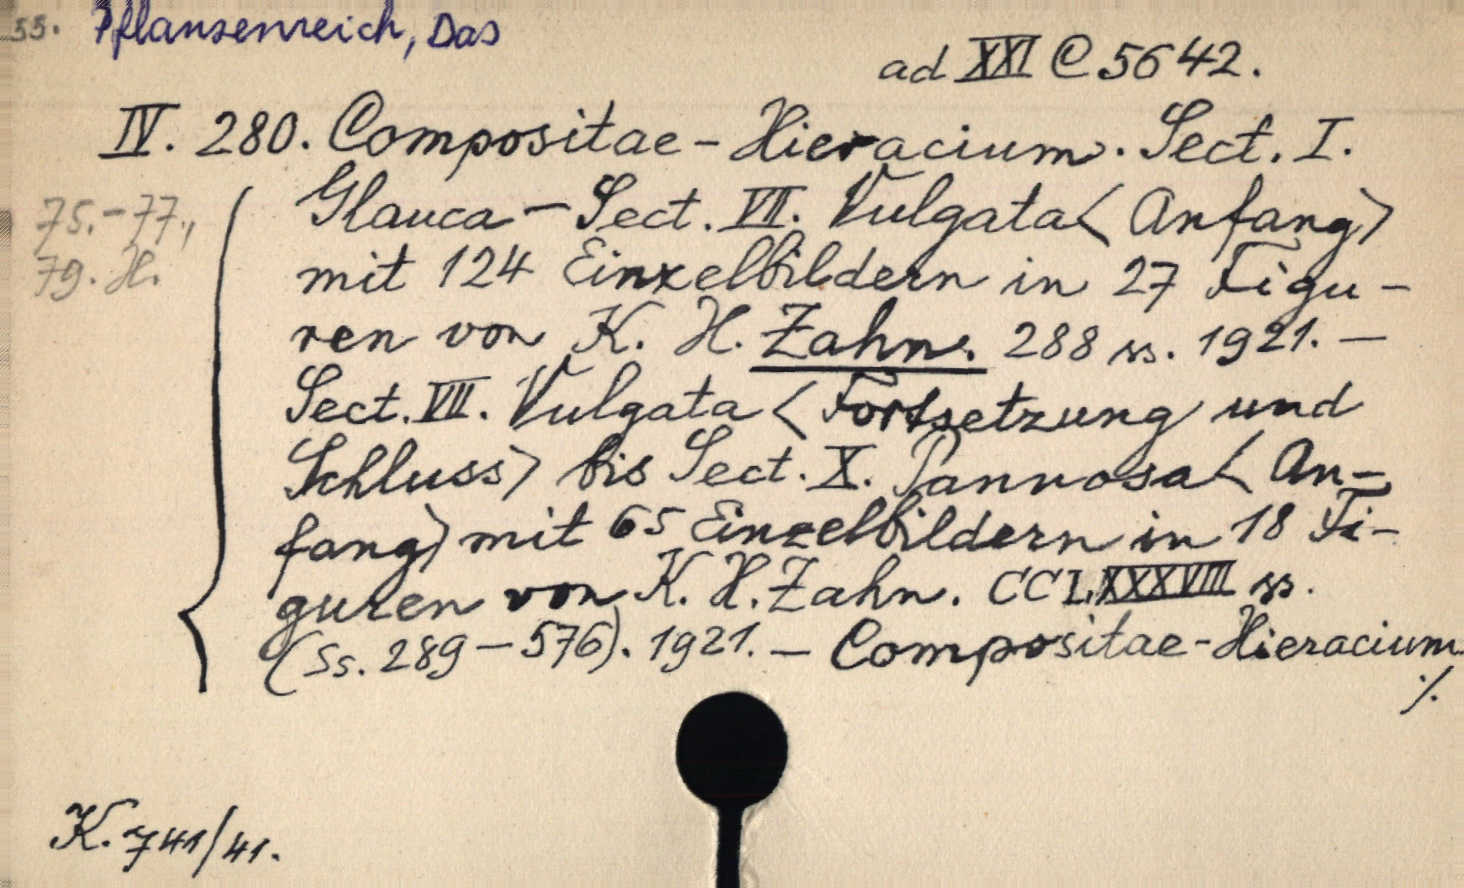 33. Pflanzenreich, Das
ad XXI C 5642.
IV. 280. Compositae - Hieracium. Sect. I.
75.-77., Glauca - Sect. VII. Vulgata < Anfang >
79. H. mit 124 Einzelbildern in 27 Figu-
ren von K. H. Zahn. 288 ss. 1921. —
Sect. VII. Vulgata < Fortsetzung und
Schluss > bis Sect. X. Pannosa < An-
fang > mit 65 Einzelbildern in 18 Fi-
guren von K. H. Zahn. CCLXXXVIII ss.
(Ss. 289 - 576). 1921. — Compositae - Hieracium
./.
K. 741/41.